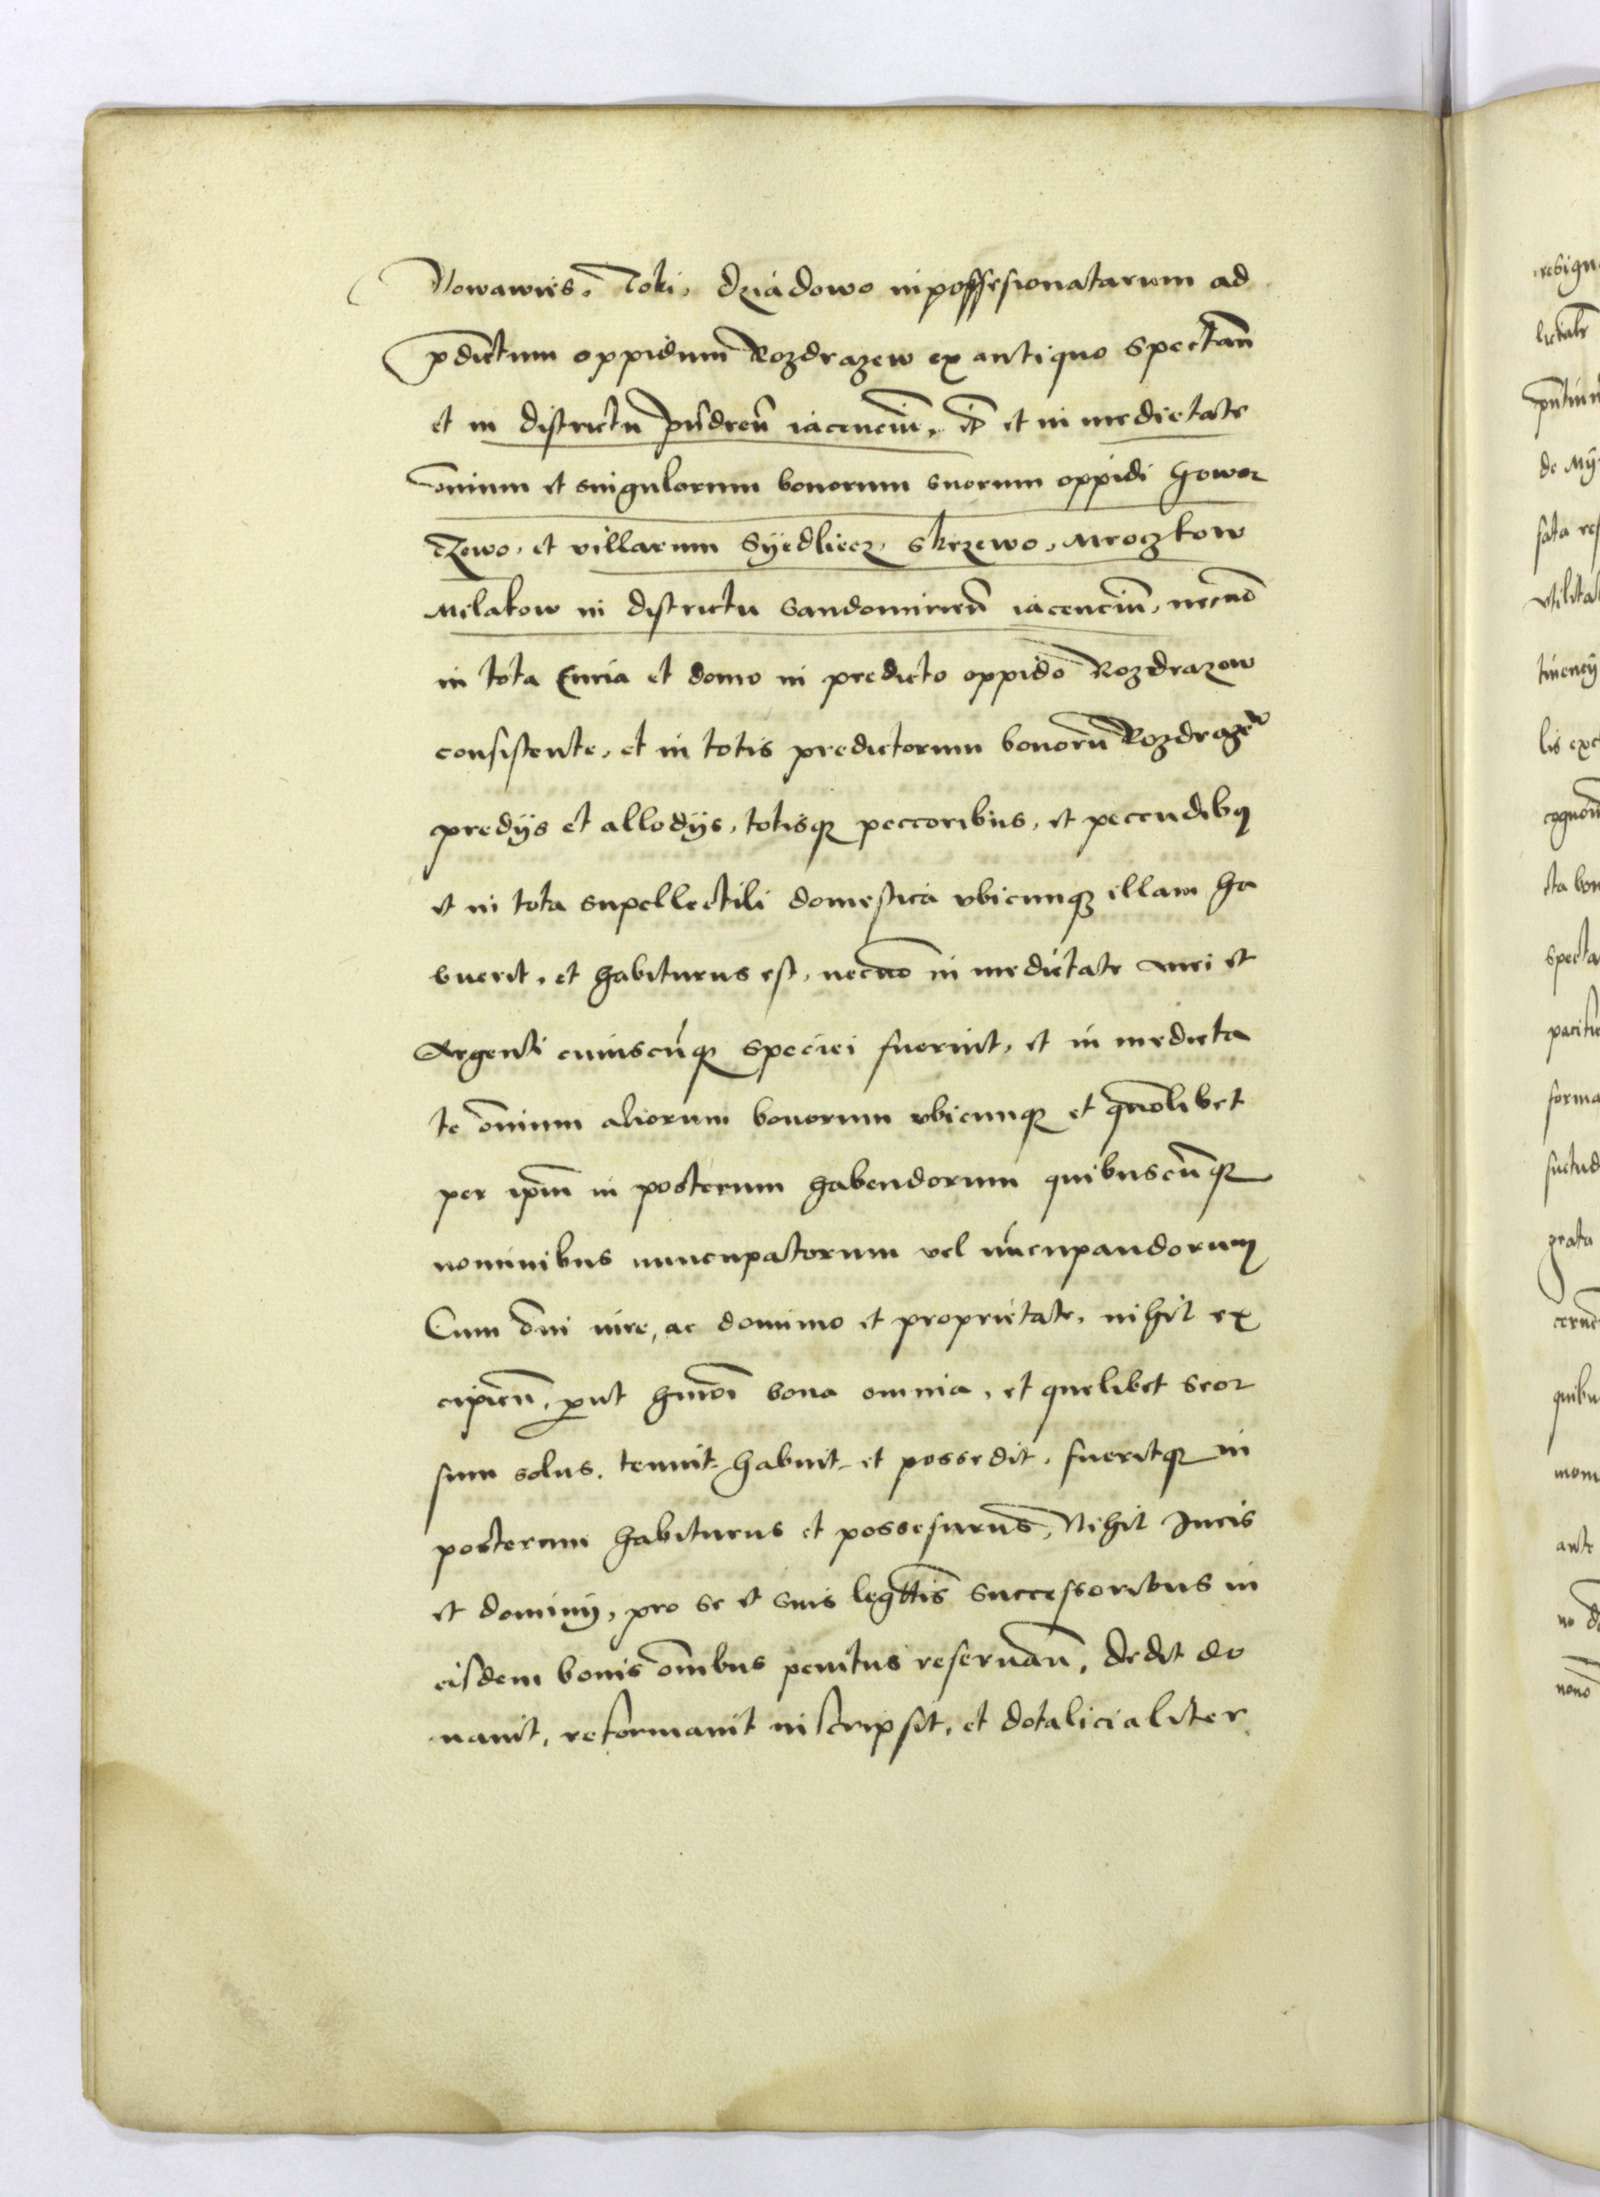 Nowawies, Toki, dziadowo inpossesionatarum ad
pdictum oppidum Rozdrazew ex antiquo spectan
et in districtu pisdren iacenciu, it et in medietate
omium et singulorum bonorum suorum oppidi Gowor
czewo, et villarum Syedliecz, skrzewo, Mroczkow
Milakow in districtu sandomirien iacenciu, necno
in tota Curia et domo in predicto oppido Rozdrazew
consistente, et in totis predictorum bonoru Rozdrazew
predijs et allodijs, totisq peccoribus, et peccudibq
et in tota supellectili domestica vbicunq illam ha
buerit, et habiturus est, necno in medietate auri et
Argenti cuiuscunq speciei fuerint, et in medieta
te omium aliorum bonorum vbicunq et quolibet
per ipm in posterum habendorum quibuscunq
nominibus nuncupatorum vel nucupandorum
Cum omi iure, ac dominio et proprietate, nihil ex
cipien, put hmoi bona omnia, et quelibet seor
sum solus, tenuit habuit et possedit, fueritq in
posterum habiturus et possesurus, Nihil Iuris
et dominij, pro se et suis legttis successoribus in
eisdem bonis omibus penitus reseruan, dedit do
nauit, reformauit inscripsit, et dotalicialiter
de
sata
vtilita
lis
spect
forma
grata
quibu
ante
nono